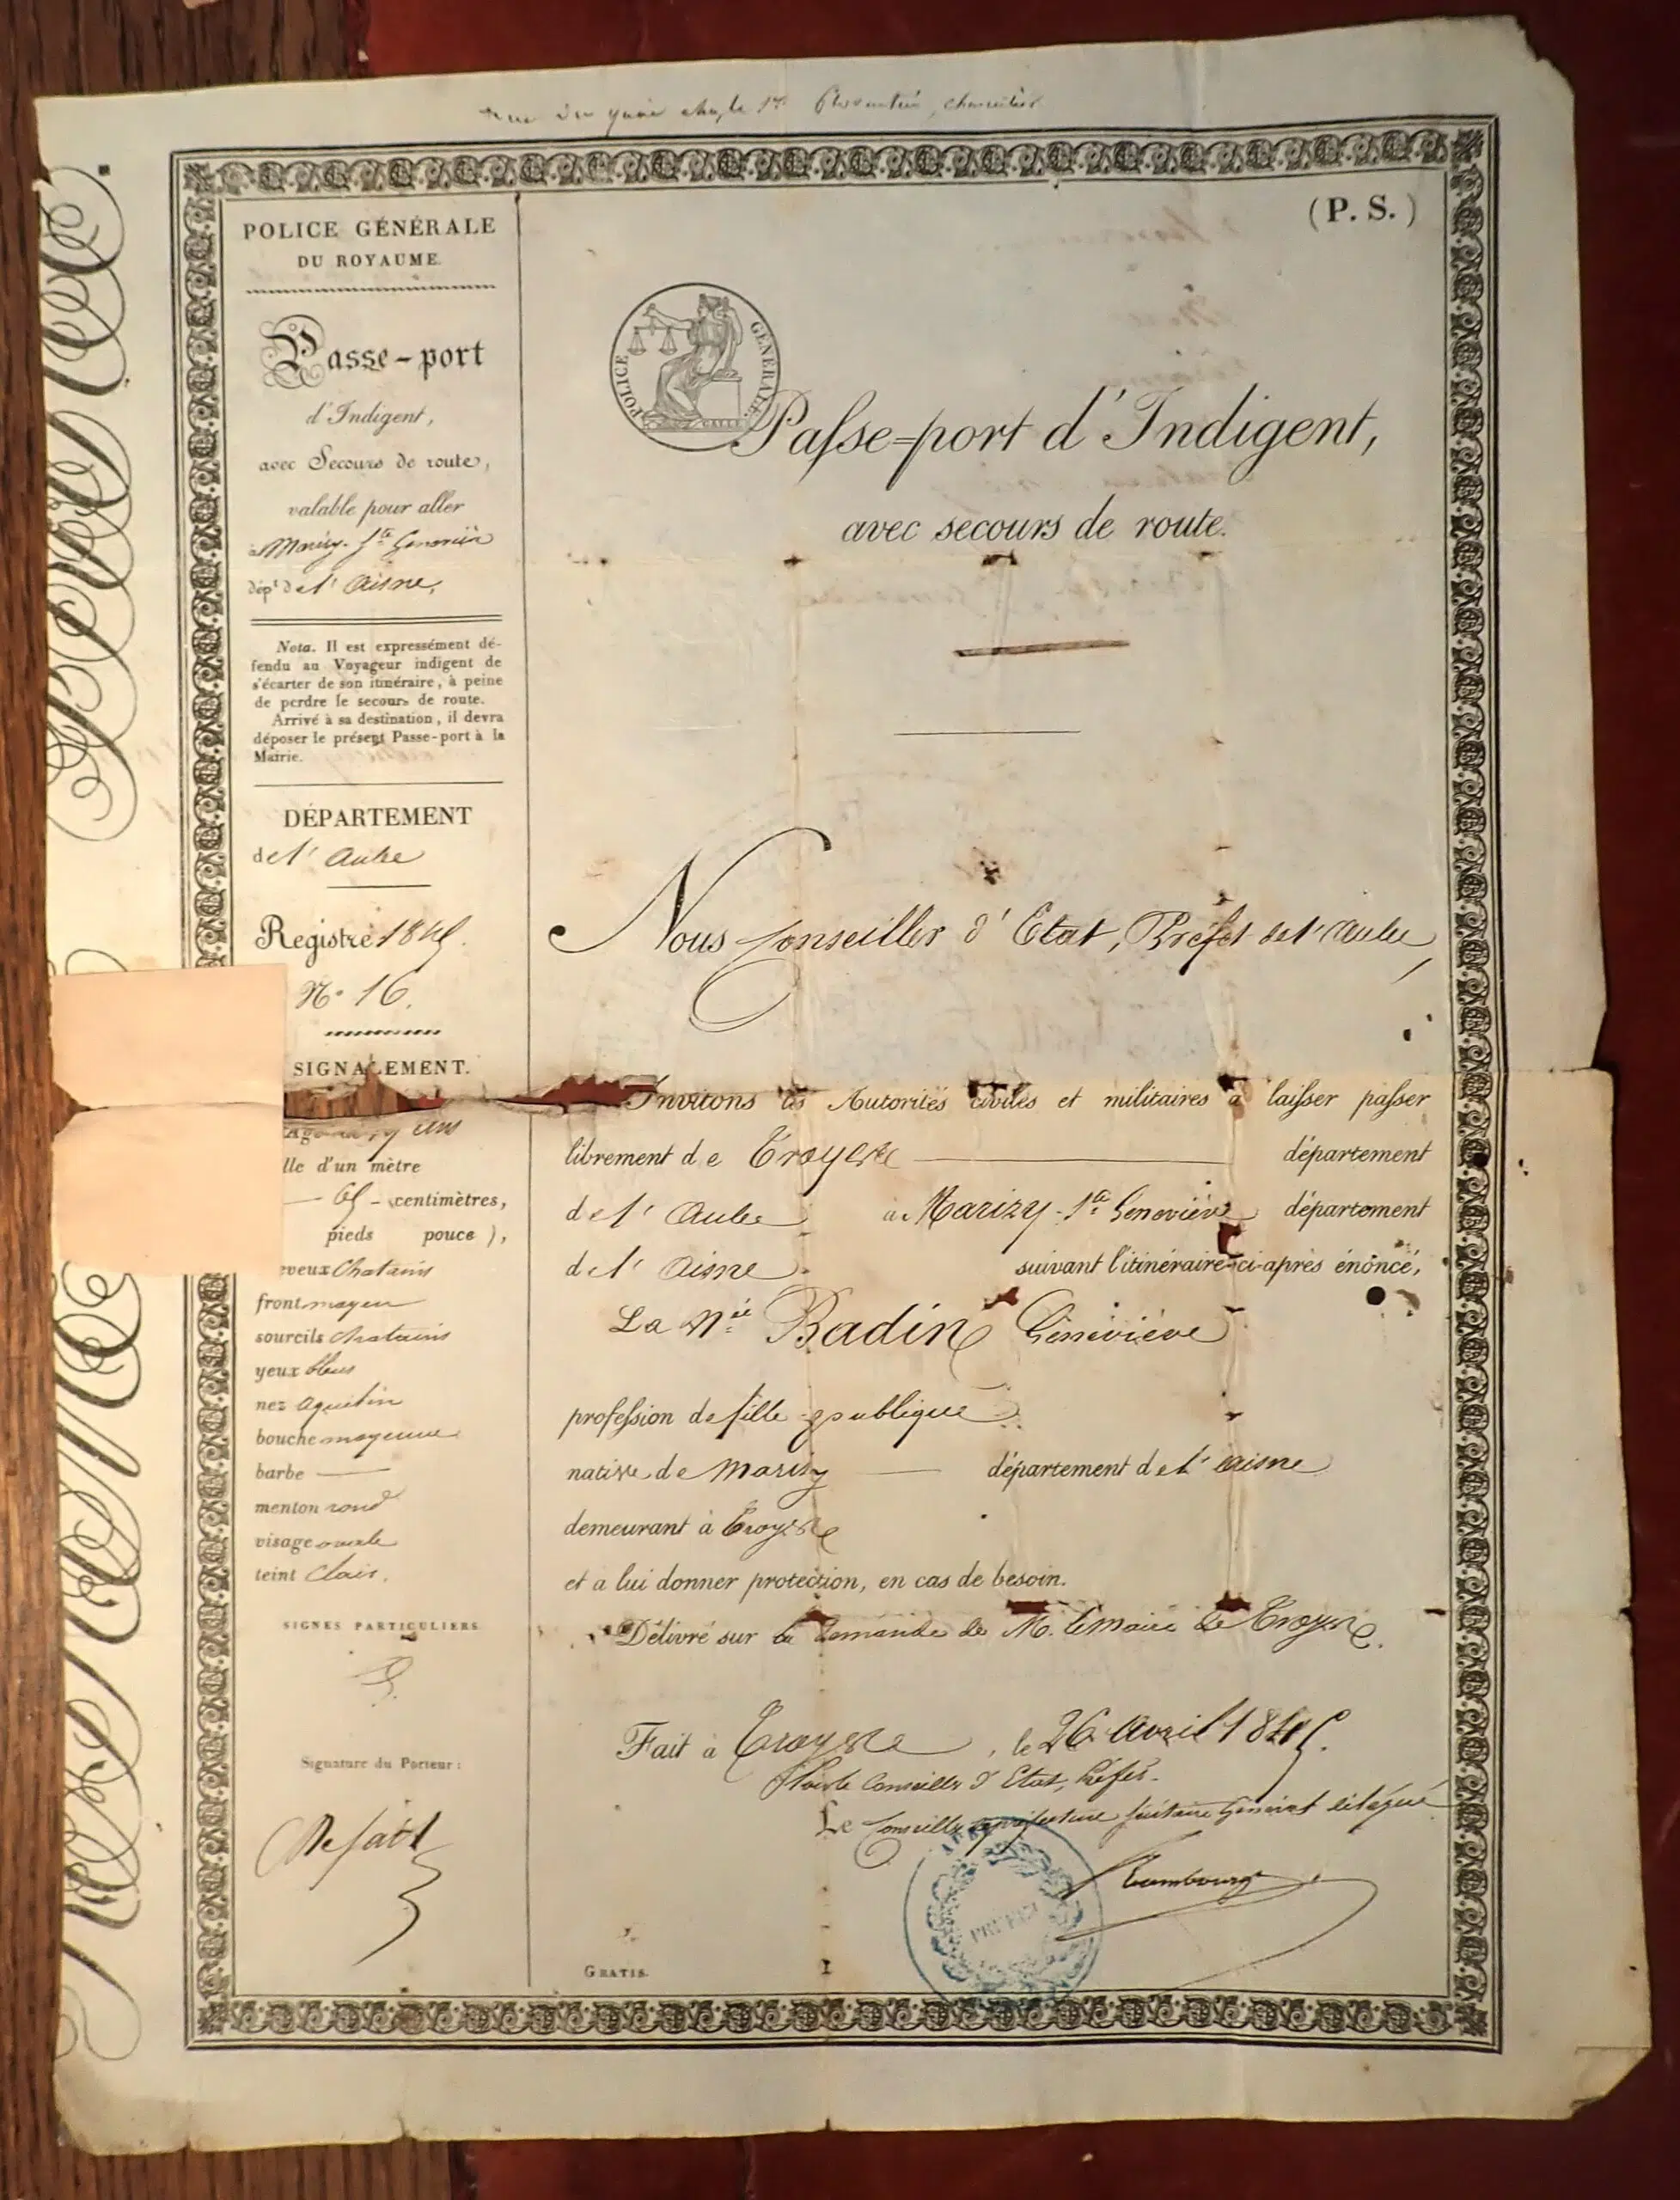 POLICE GÉNÉRALE
DU ROYAUME.
Passe-port
d'Indigent,
avec Secours de route,
valable pour aller
à Marizy-Ste Geneviève
dépt de l'Aisne,
Nota. Il est expressément dé-
fendu au Voyageur indigent de
s'écarter de son itinéraire, à peine
de perdre le secours de route.
Arrivé à sa destination, il devra
déposer le présent Passe-port à la
Mairie.
DÉPARTEMENT
de l'Aube
Registre 1845.
N° 16.
SIGNALEMENT.
ans
lle d'un mètre
65 centimètres,
pieds pouce ),
eveux Chatains
front moyen
sourcils Chatains
yeux bleus
nez aquilin
bouche moyenne
barbe —
menton rond
visage ovale
teint Clair.
SIGNES PARTICULIERS
Signature du Porteur :
(P. S.)
POLICE GÉNÉRALE.
Passe-port d'Indigent,
avec secours de route.
Nous Conseiller d'Etat, Préfet de l'Aube,
Invitons les Autorités civiles et militaires à laisser passer
librement de Troyes — département
de l'Aube à Marizy-Ste Geneviève département
de l'Aisne suivant l'itinéraire ci-après énoncé,
La Née Badin Geneviève
profession de fille publique
native de Marizy — département de l'Aisne
demeurant à Troyes
et a lui donner protection, en cas de besoin.
Délivré sur la demande de M. le Maire de Troyes.
Fait à Troyes, le 26 Avril 1845.
Pour le Conseiller d'Etat, Préfet.
Le Conseiller de préfecture Secrétaire Général délégué
PRÉFET
GRATIS.